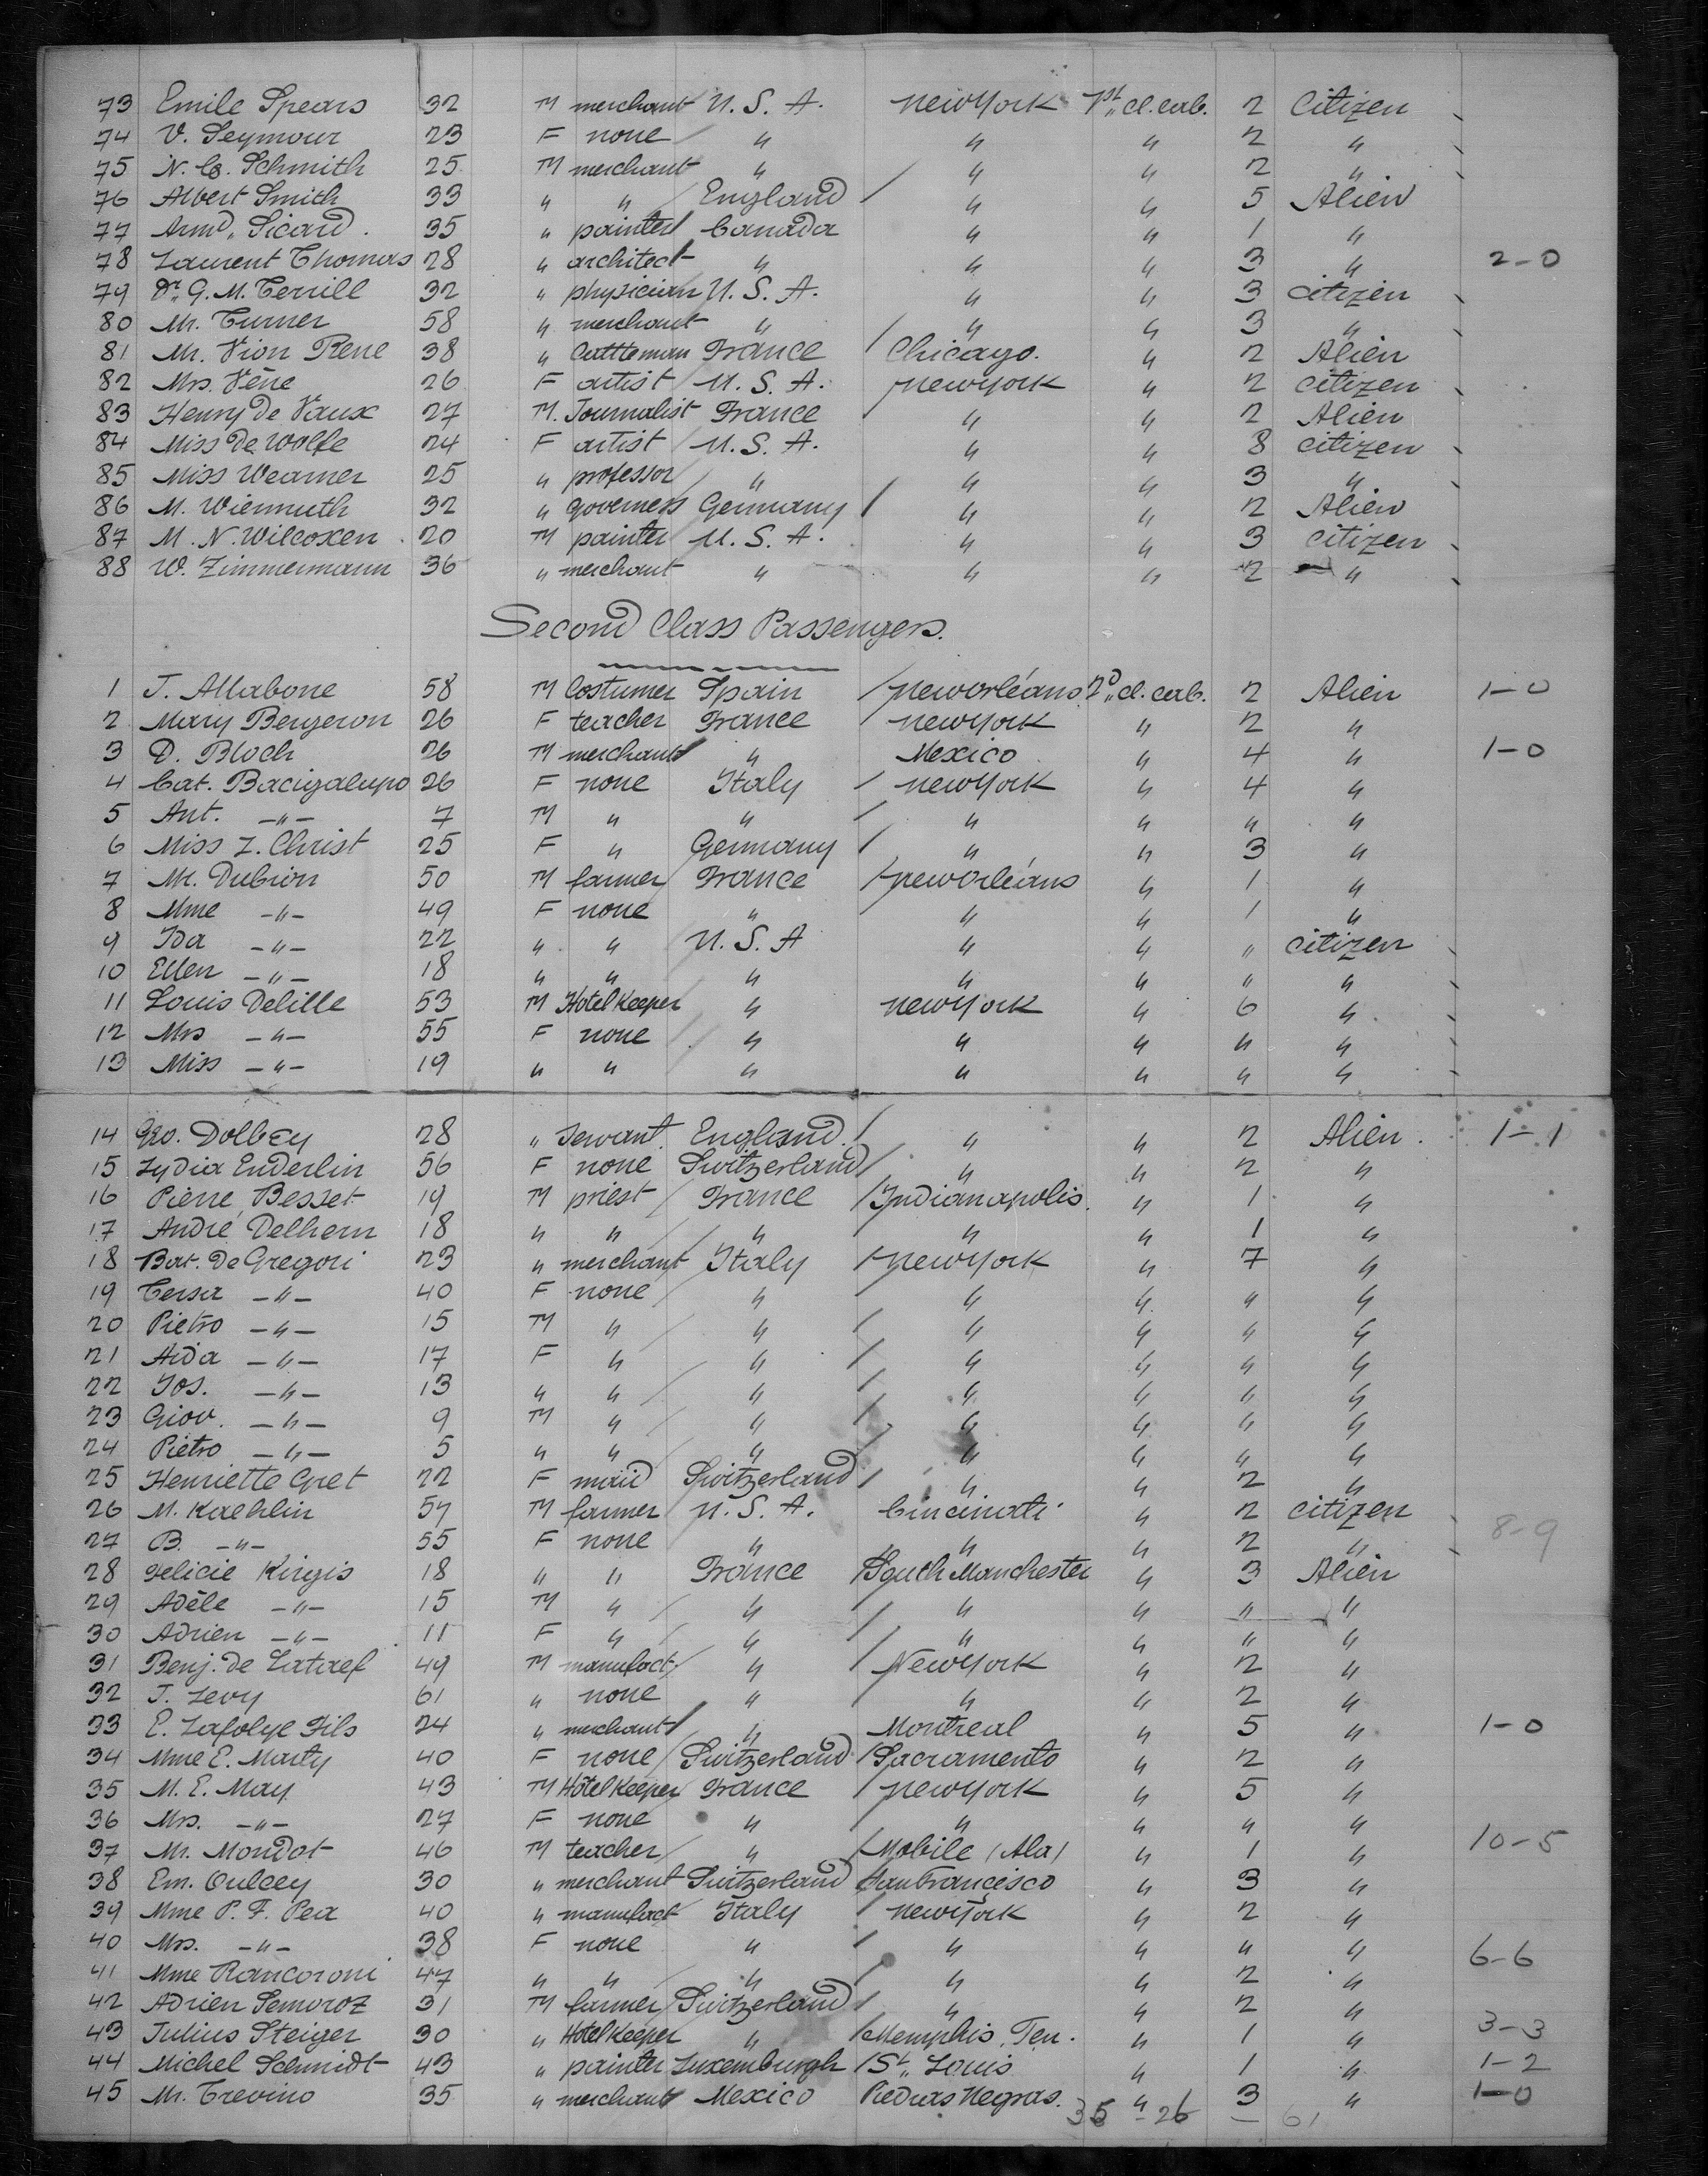 73 Emile Spears 32 M merchant U. S. A. New York 1st cl. cab. 2 Citizen
74 V. Seymour 23 F none " " " 2 "
75 N. C. Schmith 25 M merchant " " " 2 "
76 Albert Smith 33 " " England " " 5 Alien
77 Armd. Sicard. 35 " painter Canada " " 1 "
78 Laurent Thomas 28 " architect " " " 3 " 2-0
79 Dr. G. M. Terrill 32 " physician U. S. A. " " 3 citizen
80 Mr. Turner 58 " merchant " " " 3 "
81 Mr. Vion Rene 38 " Cattleman France Chicago. " 2 Alien
82 Mrs. Vêne 26 F artist U. S. A. New York " 2 citizen
83 Henry De Vaux 27 M. Journalist France " " 2 Alien
84 Miss De Wolfe 24 F artist U. S. A. " " 8 citizen
85 Miss Weamer 25 " professor " " " 3 "
86 M. Wiermuth 32 " governess Germany " " 2 Alien
87 M. N. Wilcoxen 20 M painter U. S. A. " " 3 citizen
88 W. Zimmermann 36 " merchant " " " 2 "
Second Class Passengers.
1 J. Allabone 58 M Costumer Spain New orléans 2D cl. cab. 2 Alien 1-0
2 Mary Bergeron 26 F teacher France New York " 2 "
3 D. Bloch 26 M merchant " Mexico " 4 " 1-0
4 Cat. Bacigalupo 26 F none Italy New York " 4 "
5 Ant. -"- 7 M " " " " " "
6 Miss Z. Christ 25 F " Germany " " 3 "
7 Mr. Dubrion 50 M farmer France New Orléans " 1 "
8 Mme -"- 49 F none " " " 1 "
9 Ida -"- 22 " " U. S. A " " " citizen
10 Ellen -"- 18 " " " " " " "
11 Louis Delille 53 M Hotel Keeper " New York " 6 "
12 Mrs -"- 55 F none " " " " "
13 Miss -"- 19 " " " " " " "
14 Geo. Dolbey 28 " servant. England. " " 2 Alien. 1-1
15 Lydia Enderlin 56 F none Switzerland " " 2 "
16 Pierre Besset 19 M priest France Indianapolis. " 1 "
17 André Delhern 18 " " " " " 1 "
18 Bat. De Gregori 23 " merchant Italy New York " 7 "
19 Tersa -"- 40 F none " " " " "
20 Pietro -"- 15 M " " " " " "
21 Aida -"- 17 F " " " " " "
22 Jos. -"- 13 " " " " " " "
23 Giov. -"- 9 M " " " " " "
24 Pietro -"- 5 " " " " " " "
25 Henriette Gret 22 F maid Switzerland " " 2 "
26 M. Kaehlin 57 M farmer U. S. A. Cincinati " 2 citizen
27 B. -"- 55 F none " " " 2 " 8-9
28 Felicie Kirgis 18 " " France South Manchester " 3 Alien
29 Adèle -"- 15 M " " " " " "
30 Adrien -"- 11 F " " " " " "
31 Benj. de Lataef 49 M manufact " New York " 2 "
32 J. Levy 61 " none " " " 2 "
33 E. Lafolye Fils 24 " merchant " Montreal " 5 " 1-0
34 Mme E. Marty 40 F none Switzerland Sacramento " 2 "
35 M. E. May 43 M Hôtel Keeper France New York " 5 "
36 Mrs. -"- 27 F none " " " " "
37 Mr. Mondot 46 M teacher " Mobile (Ala) " 1 " 10-5
38 Em. Oulcey 30 " merchant Switzerland San Francisco " 3 "
39 Mme P. F. Pea 40 " manufact Italy New York " 2 "
40 Mrs. -"- 38 F none " " " " " 6-6
41 Mme Rancoroni 47 " " " " " 2 "
42 Adrien Semoroz 31 M farmer Switzerland " " 2 "
43 Julius Steiger 30 " Hotel Keeper " Memphis, Ten. " 1 " 3-3
44 Michel Schmidt 43 " painter Luxemburgh St. Louis " 1 " 1-2
45 Mr. Trevino 35 " merchant Mexico Piedras Negras. " 3 " 1-0
35 - 26 - 61